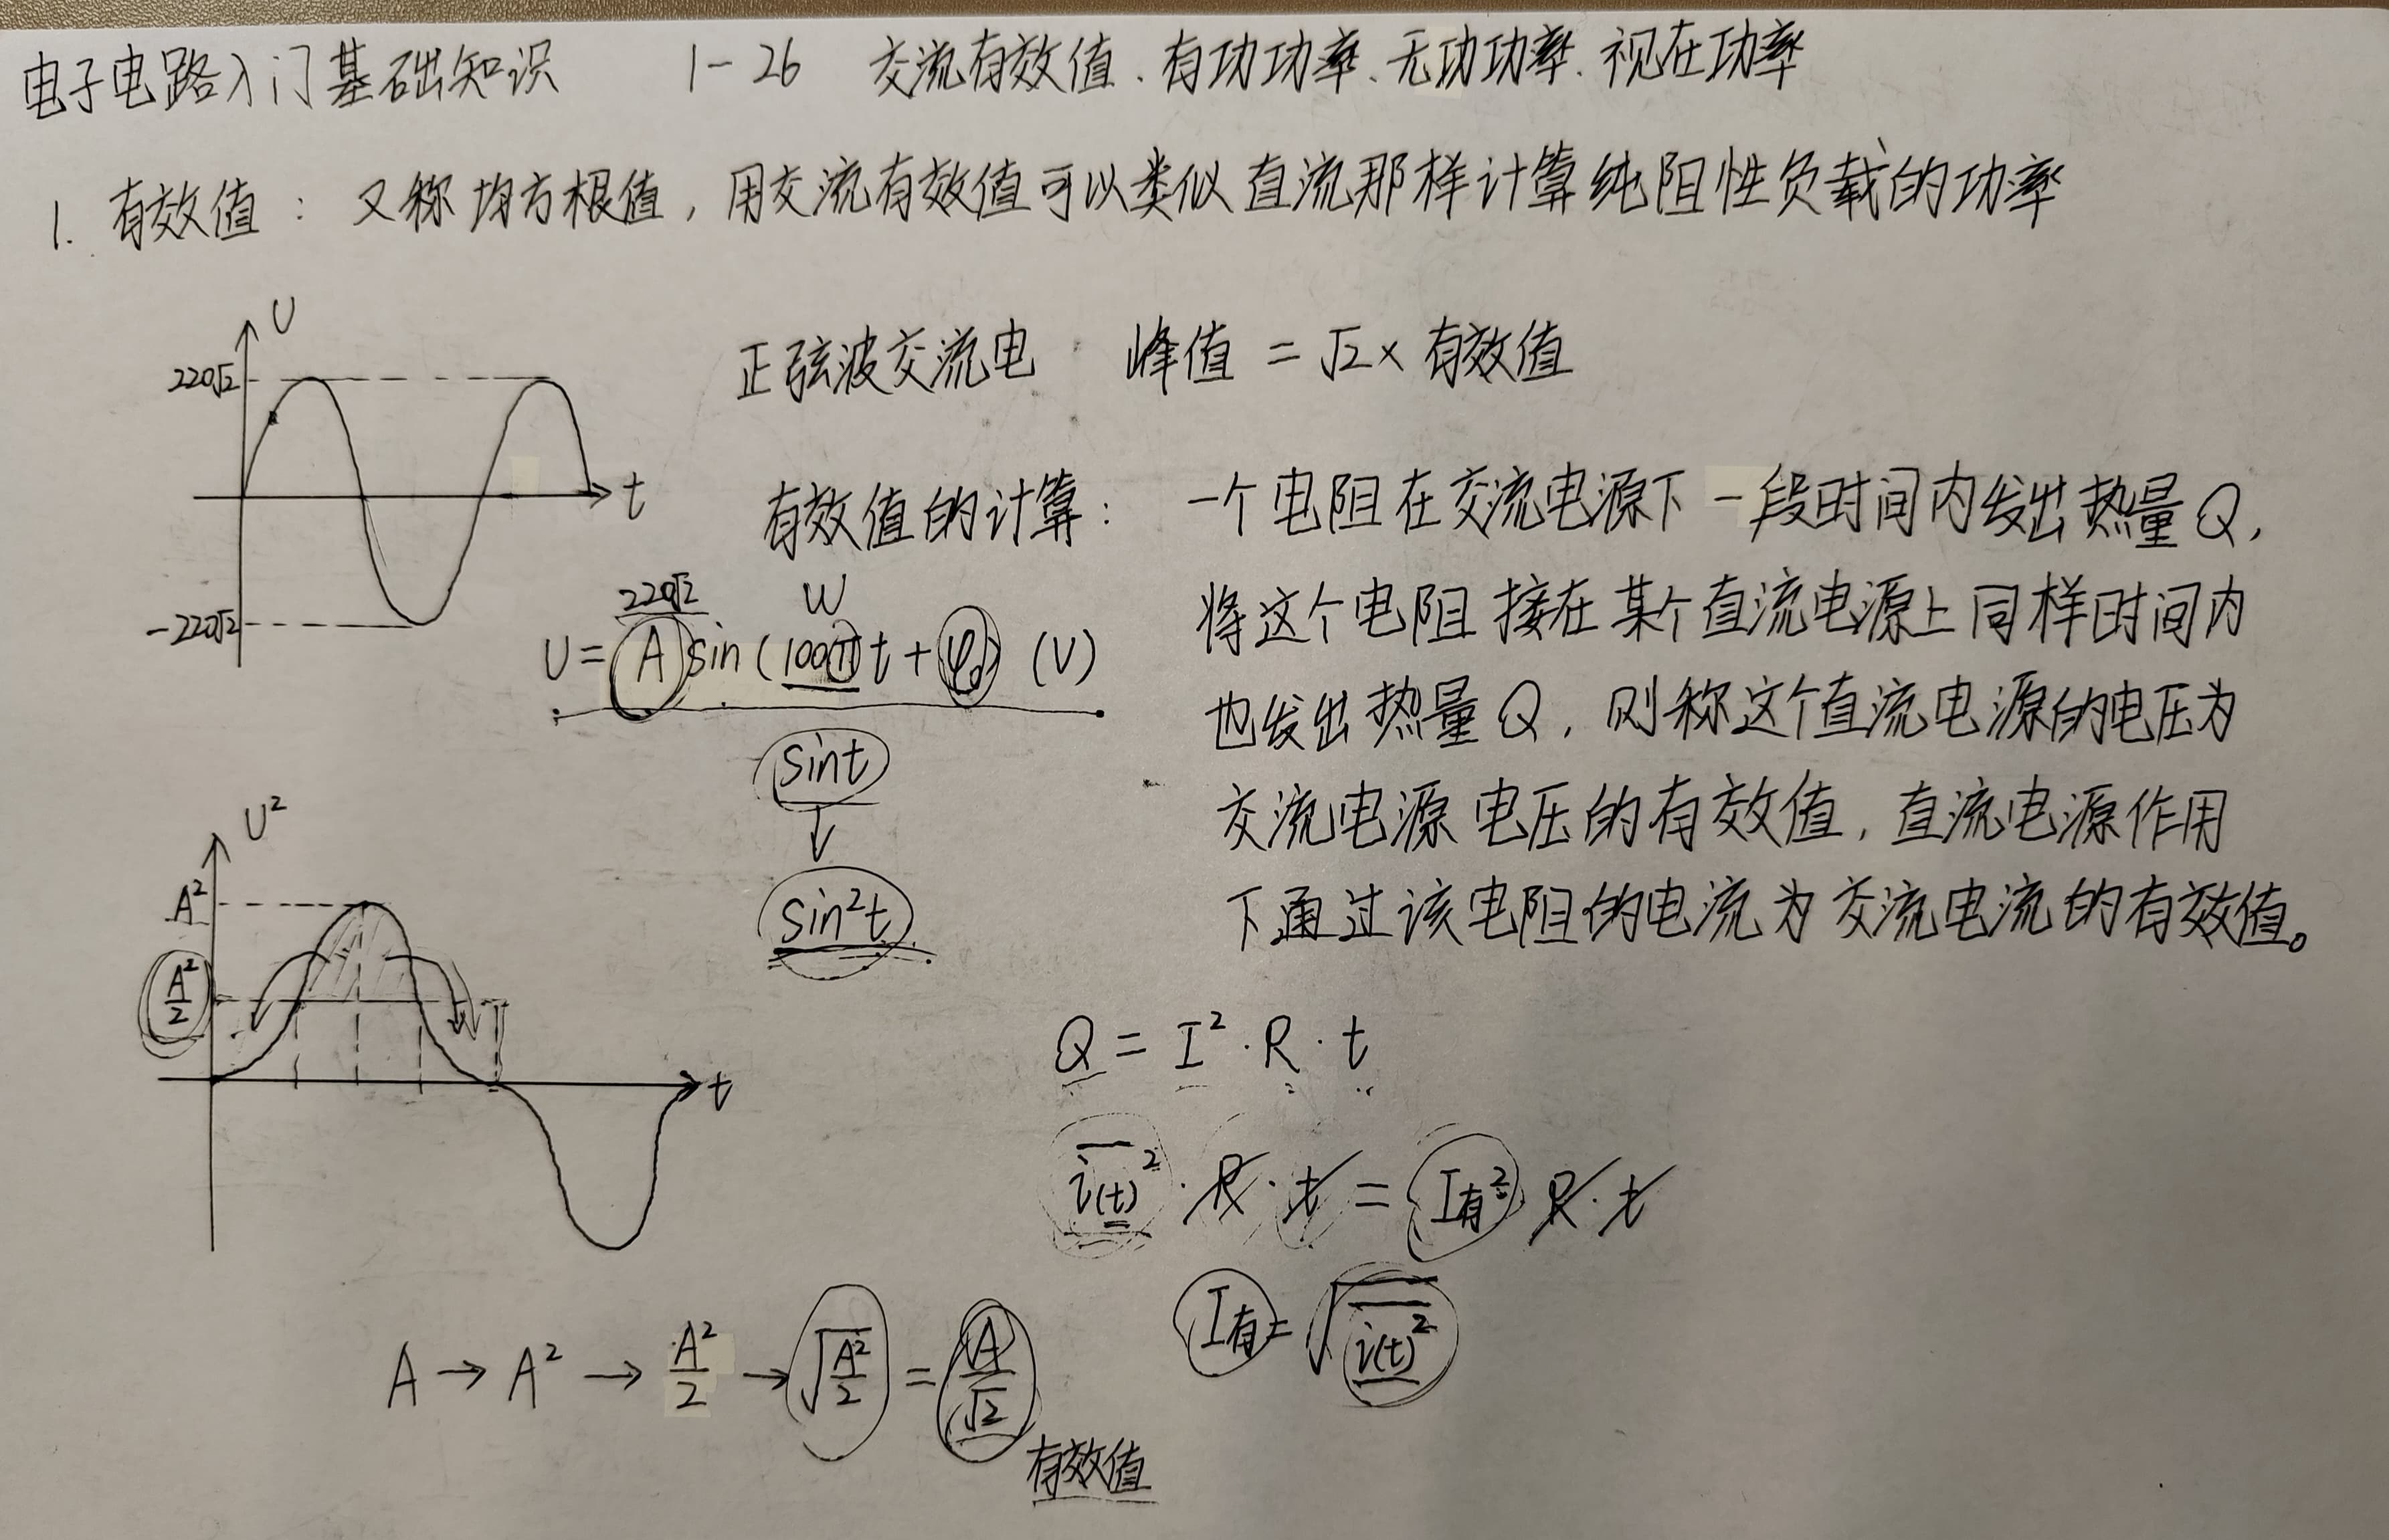 电子电路入门基础知识 1-26 交流有效值、有功功率、无功功率、视在功率
1. 有效值：又称均方根值，用交流有效值可以类似直流那样计算纯阻性负载的功率
U
220√2
t
-220√2
正弦波交流电 峰值 = √2 × 有效值
有效值的计算：一个电阻在交流电源下一段时间内发出热量Q，
将这个电阻接在某个直流电源上同样时间内
也发出热量Q，则称这个直流电源的电压为
交流电源电压的有效值，直流电源作用
下通过该电阻的电流为交流电流的有效值。
220√2 W
U = A sin (100π t + φ₀) (V)
sint
↓
sin²t
U²
A²
A²/2
t
Q = I² · R · t
i(t)² · R · t = I有² R · t
I有 = √i(t)²
A → A² → A²/2 → √A²/2 = A/√2
有效值